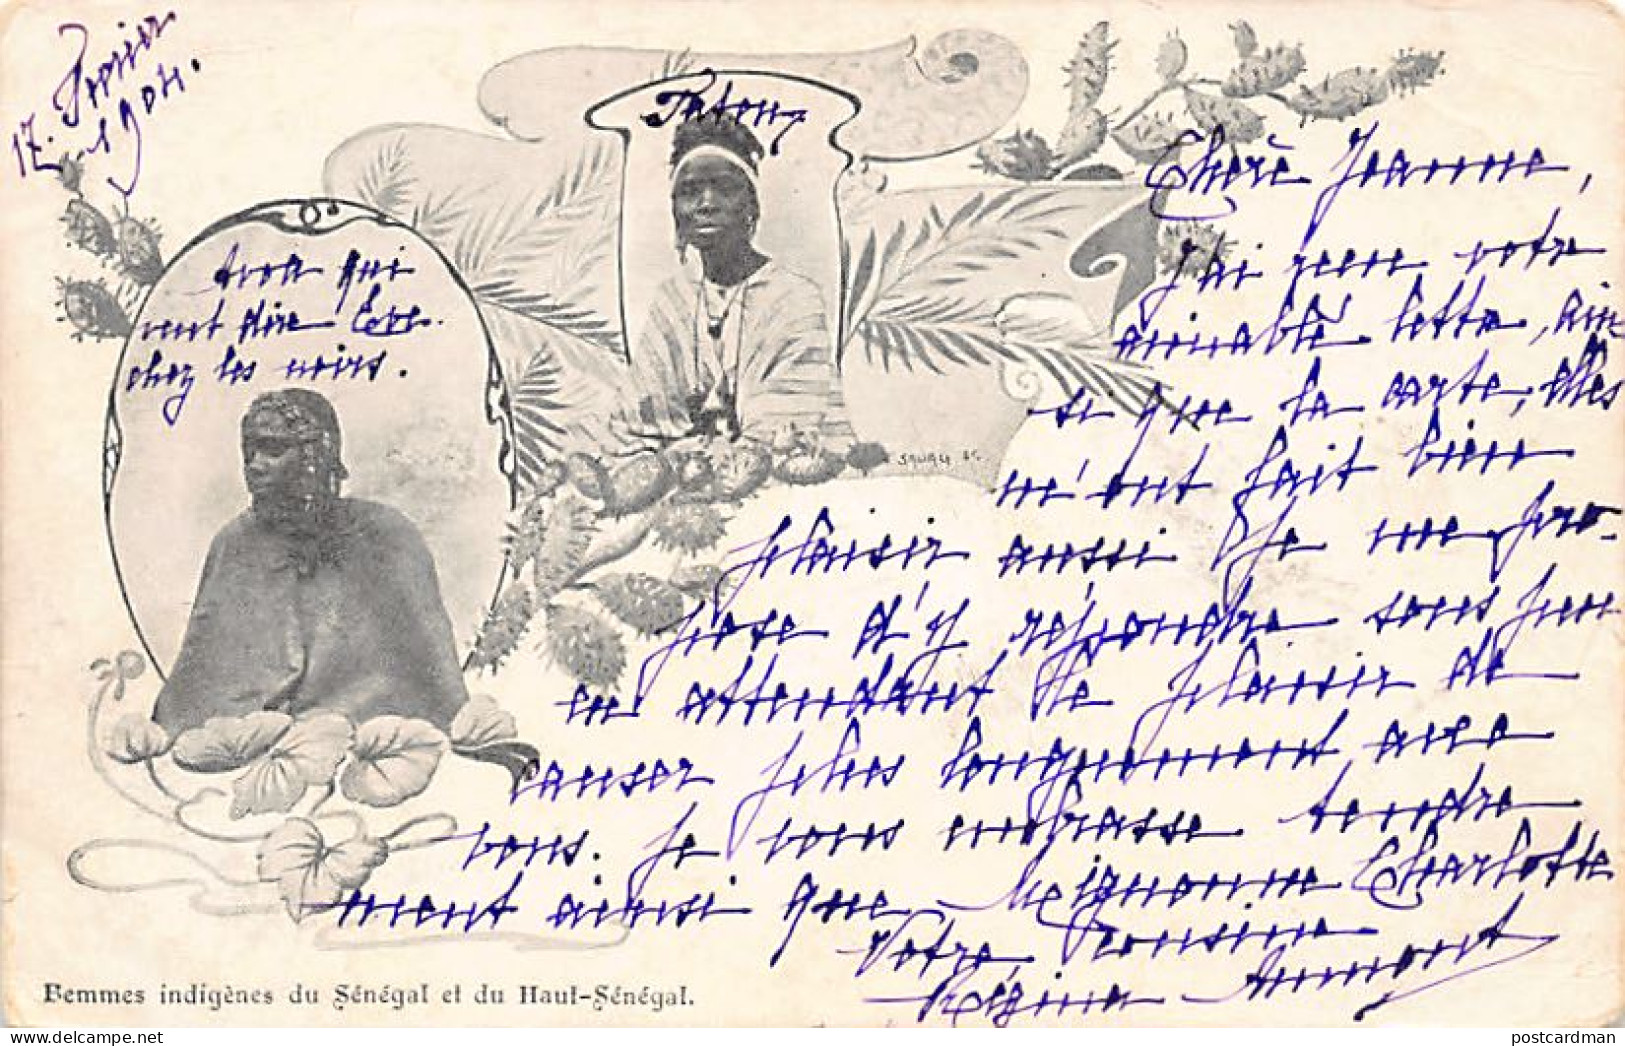 17. Février
1904.
Fatou
Awa qui
veut dire Eve.
chez les noirs.
SAUAU SC.
Chère Jeanne,
J'ai reçu votre
aimable lettre, ain-
si que la carte, elles
m'ont fait bien
plaisir aussi Je me pro-
pose d'y répondre sous peu
en attendant le plaisir de
causer plus longuement avec
vous. Je vous embrasse tendre
ment ainsi que Mignonne Charlotte
Votre Cousine
Régina Aumont
Femmes indigènes du Sénégal et du Haut-Sénégal.
postcardman